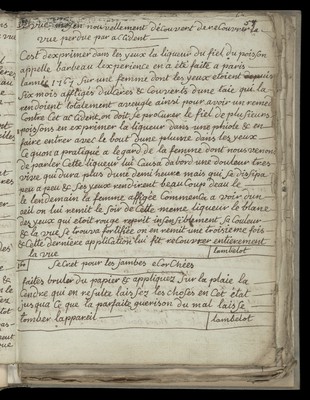 moyen nouvellement découvert de recouvrer la
vue perdue par accident
C'est d'exprimer dans les yeux la liqueur du fiel du poisson
appellé barbeau lexperience en a été faite a paris
lannée 1767 Sur une femme dont les yeux etoient depuis
Six mois affligés dulceres & couverts dune taie qui la
rendoient totalement aveugle ainsi pour avoir un remede
Contre Cet accident, on doit se procurer le fiel de plusieurs
poissons en exprimer la liqueur dans une phiole & en
faire entrer avec le bout dune plume dans les yeux
Ce quon a pratiqué a legard de la femme dont nous venons
de parler Cette liqueur lui Causa dabord une douleur tres
vive qui dura plus dune demi heure mais qui se dissipa
peu a peu & Ses yeux rendirent beaucoup deau le
le lendemain la femme affligée Commenca a voir dun
œil on lui remit le Soir de Cette meme liqueur le blanc
des yeux qui etoit rouge reprit insensiblement Sa Couleur
& la vue Se trouva fortifiée on en remit une troisieme fois
& Cette derniere application lui fit recouvrer entierement
la vue lambelot
Secret pour les jambes ecorchées
faites bruler du papier & appliquez Sur la plaie la
Cendre qui en resulte laissez les choses en Cet état
jusqua Ce que la parfaite guerison du mal laisse
tomber lappareil lambelot